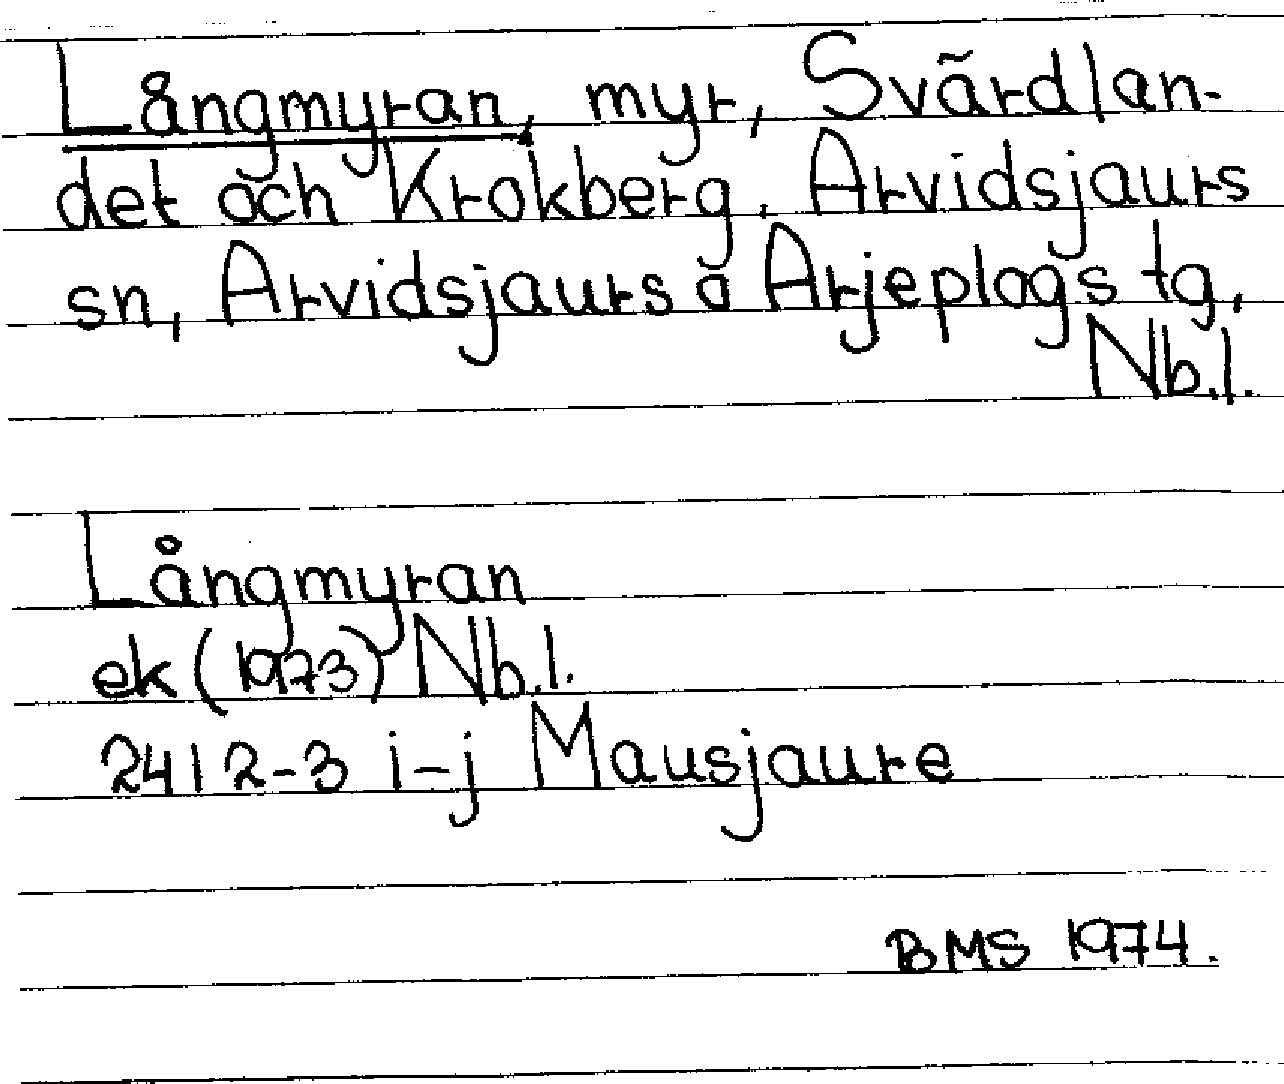 Långmyran, myr, Svärdlan-
det och Krokberg, Arvidsjaurs
sn, Arvidsjaurs o Arjeplogs tg,
Nb.l.
Långmyran
ek (1973) Nb.l.
2412-3 i-j Mausjaure
BMS 1974.